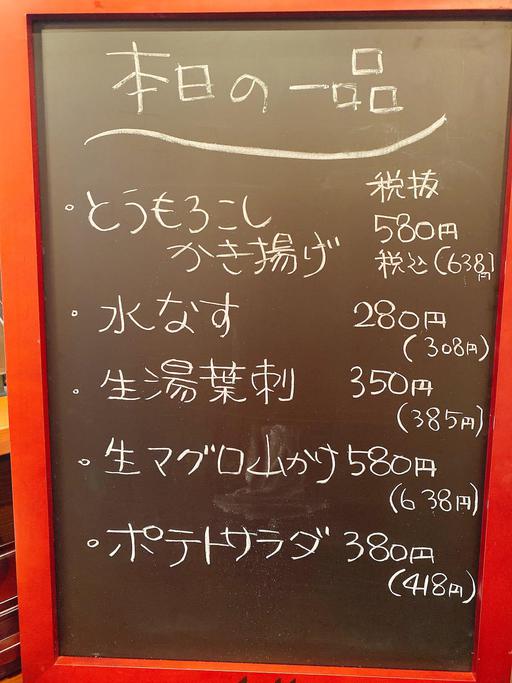 本日の一品
税抜
・とうもろこし 580円
かき揚げ 税込(638円)
・水なす 280円
(308円)
・生湯葉刺 350円
(385円)
・生マグロ山かけ 580円
(638円)
・ポテトサラダ 380円
(418円)